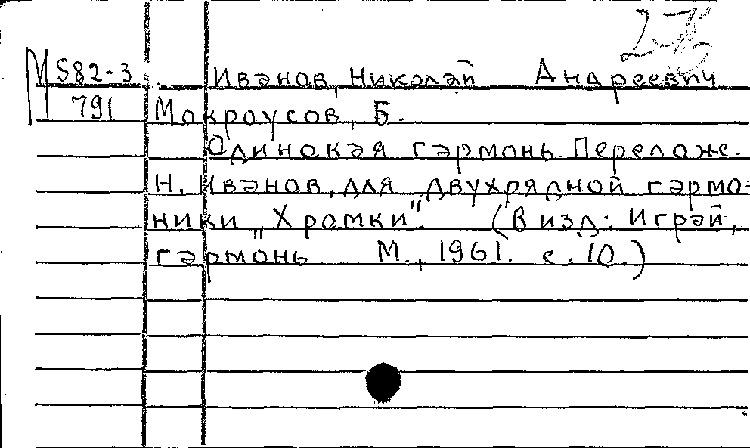 М S82-3 Иванов, Николай Андреевич
791 Мокроусов, Б.
Одинокая гармонь. Перелож.
Н. Иванов, для двухрядной гармо-
ники „Хромки". (В изд: Играй,
гармонь М., 1961. с. 10.)